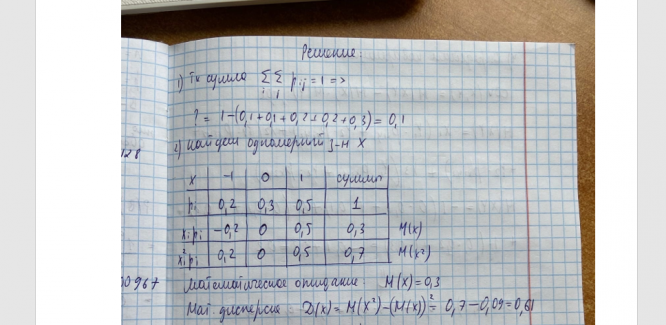 Решение:
1) Тк сумма Σ Σ pij = 1 =>
i j
? = 1-(0,1+0,1+0,2+0,2+0,3)=0,1
2) найдем одномерный з-н X
X -1 0 1 сумма
pi 0,2 0,3 0,5 1
xipi -0,2 0 0,5 0,3 M(x)
xi²pi 0,2 0 0,5 0,7 M(x²)
Математическое ожидание: M(x)=0,3
Мат. дисперсия: D(x)= M(x²)-(M(x))²= 0,7-0,09=0,61
128
0967